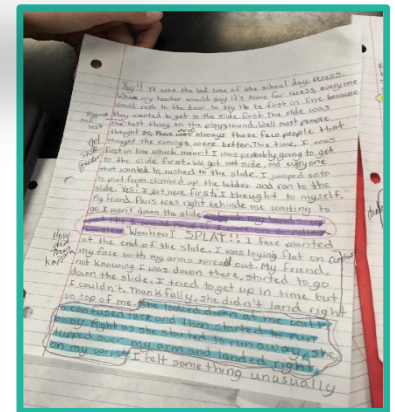 Yay!! It was the bed time of the school day, recess.
When my teacher would say it's time for recess, everyone
would rush to the door to try to be first in line because
they wanted to get to the slide first. The slide was
the best thing on the playground. Well most people
thought so, There was always those few people that
thought the swings were better. This time, I was
first in line which meant I was probably going to get
to the slide first. We got out side, and everyone
that wanted to rushed to the slide. I jumped onto
platform climbed up the ladder and ran to the
slide. Yes! I got here first, I thought to myself.
My friend Paris was right behinde me waiting to
go. I went down the slide
Wahoo! SPLAT!! I face planted
at the end of the slide. I was laying flat on
my face with my arms spread out. My friend,
not knowing I was down there, started to go
down the slide. I tried to get up in time but
I couldn't. Thankfully, she didn't land right
on top of me. She looked down at me with
confused face and then started to run
away. Right as she started to run away, she
tripped over my arm and landed right
on my wrist. I felt some thing unusually
How
did